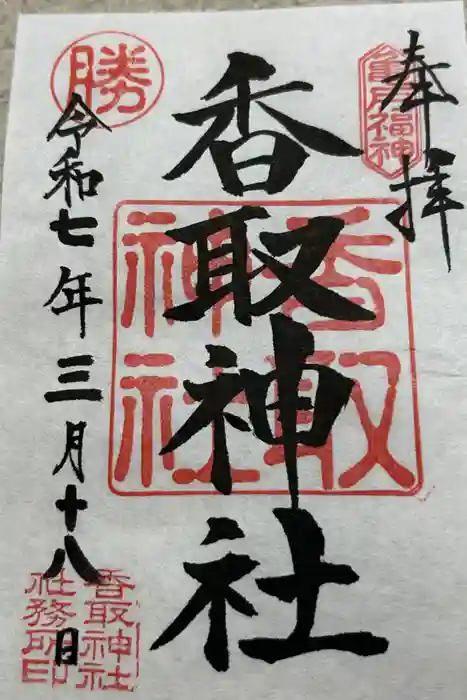 奉拝
亀戸福神
香取神社
香取神社
勝
令和七年三月十八日
香取神社
社務所印